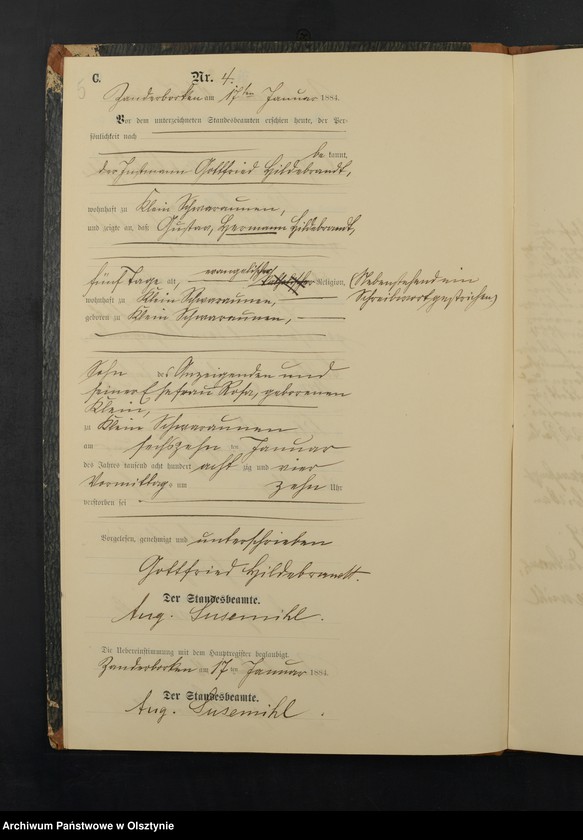 C.
Nr. 4.
Zanderborken am 17ten Januar 1884.
Vor dem unterzeichneten Standesbeamten erschien heute, der Per-
sönlichkeit nach
be kannt,
der Instmann Gottfried Hildebrandt,
wohnhaft zu Klein Schwaraunen,
und zeigte an, daß Gustav, Hermann Hildebrandt,
evangelischer
fünf Tage alt, katholischer Religion, (Nebenstehend ein
wohnhaft zu Klein Schwaraunen, Schreibwort gestrichen)
geboren zu Klein Schwaraunen,
Sohn des Anzeigenden und
seiner Ehefrau Rosa, geborenen
Klein,
zu Klein Schwaraunen
am sechszehn ten Januar
des Jahres tausend acht hundert acht zig und vier
Vormittags um zehn Uhr
verstorben sei
Vorgelesen, genehmigt und unterschrieben
Gottfried Hildebrandt.
Der Standesbeamte.
Aug. Susemihl.
Die Uebereinstimmung mit dem Hauptregister beglaubigt.
Zanderborken am 17 ten Januar 1884
Der Standesbeamte.
Aug. Susemihl.
Archiwum Państwowe w Olsztynie